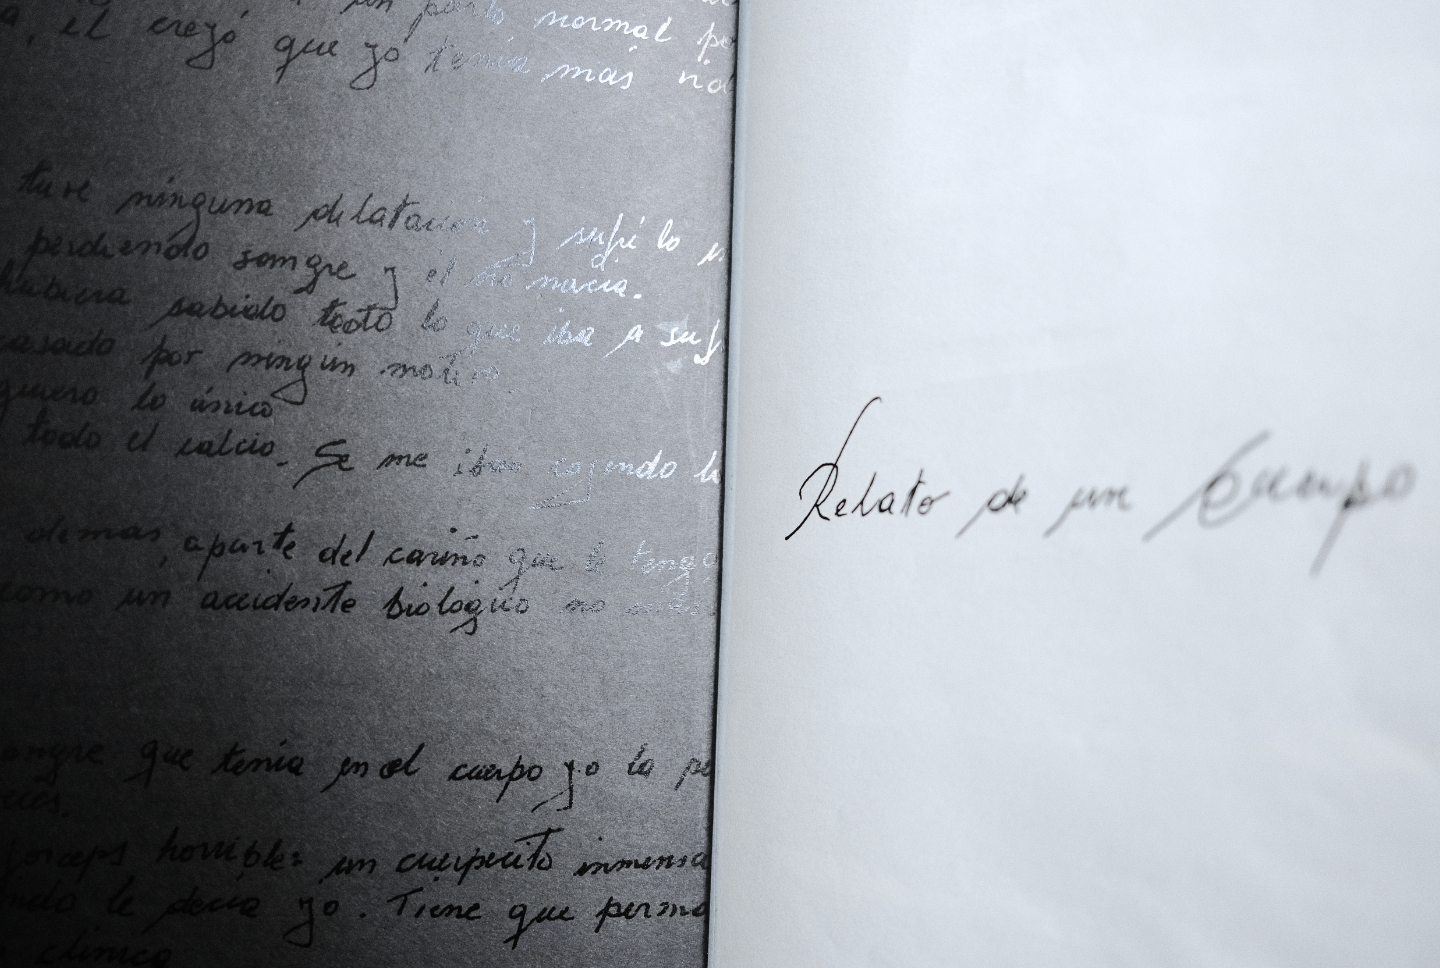 un parto normal
, el creyó que yo tenía más
tuve ninguna delatación y sufrí lo
perdiendo sangre y él no nacía.
hubiera sabido todo lo que iba a
casado por ningún motivo.
quiero lo único
todo el calcio. Se me iban cogendo
demas, aparte del cariño que le tengo
como un accidente biológico no
que tenía en el cuerpo yo la
forceps horribles un cuerpecito
le decía yo. Tiene que
clínico
Relato de un Cuerpo